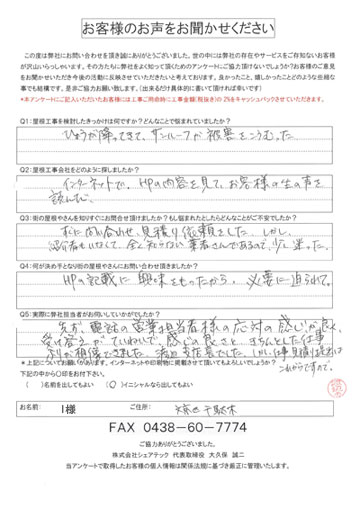 お客様のお声をお聞かせください
この度は弊社にお問い合わせを頂き誠にありがとうございました。世の中には弊社の存在やサービスをご存知ないお客様
が沢山いらっしゃいます。その方たちに弊社をよく知って頂くためのアンケートにご協力頂けないでしょうか?お客様のご意見
をお聞かせいただき今後の活動に反映させていただきたいと考えております。良かったこと、嬉しかったことどのような些細な
事でも結構です。是非ご協力お願い致します。(出来るだけ具体的に書いて頂ければ幸いです)
*本アンケートにご記入いただいたお客様には工事ご用命時に工事金額(税抜き)の2%をキャッシュバックさせていただきます。
Q1:屋根工事を検討したきっかけは何ですか?どんなことで悩まれていましたか?
ひょうが降ってきて、サンルーフが被害をこうむった
Q2:屋根工事会社をどのように探しましたか?
インターネットで、HPの内容を見て、お客様の生の声を
読んで。
Q3:街の屋根やさんを知りすぐにお問合せ頂けましたか?もし悩まれたとしたらどんなことがご不安でしたか?
すぐに問い合わせ、見積り依頼をした。しかし、
紹介者もいなくて、全く知らない業者さんであるので、少し迷った。
Q4:何が決め手となり街の屋根やさんにお問い合わせ頂きましたか?
HPの記載に興味をもったから。必要に迫られて。
Q5:実際に弊社担当者がお伺いしていかがでしたか?
先ず、貴社の営業担当者様の応対の感じが良く、
受け答えがていねいで、感じの良さと、きちんとした仕事
ぶりが想像できました。
*上記についてお願いがあります。インターネットや印刷物に掲載させて頂いてもよろしいでしょうか?
下記の中から〇印をお付下さい。
これからですので。
( )名前を出してもよい (〇)イニシャルなら出してもよい
お名前: I様 ご住所:
FAX 0438-60-7774
ご協力ありがとうございました。
株式会社シェアテック 代表取締役 大久保 誠二
当アンケートで取得したお客様の個人情報は関係法規に基づき厳正に管理いたします。